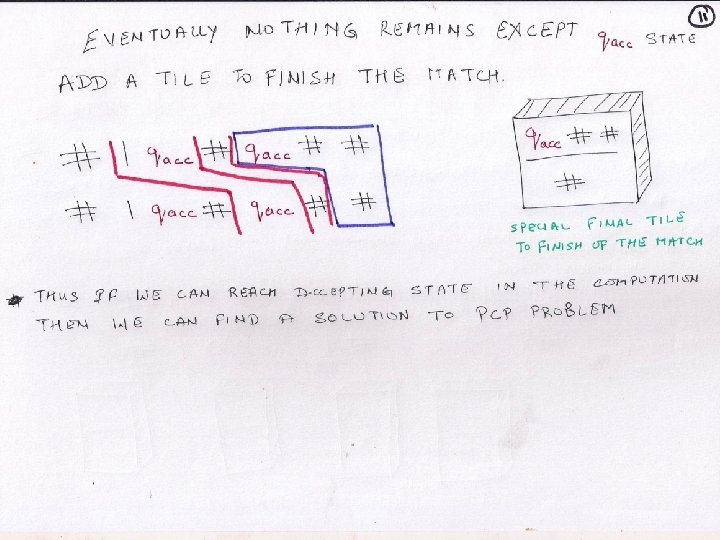 11
EVENTUALLY NOTHING REMAINS EXCEPT qacc STATE
ADD A TILE TO FINISH THE MATCH.
# 1 qacc # qacc # #
# 1 qacc # qacc # #
qacc # #
#
SPECIAL FINAL TILE
TO FINISH OF THE MATCH
* THUS IF WE CAN REACH ACCEPTING STATE IN THE COMPUTATION
THEN WE CAN FIND A SOLUTION TO PCP PROBLEM